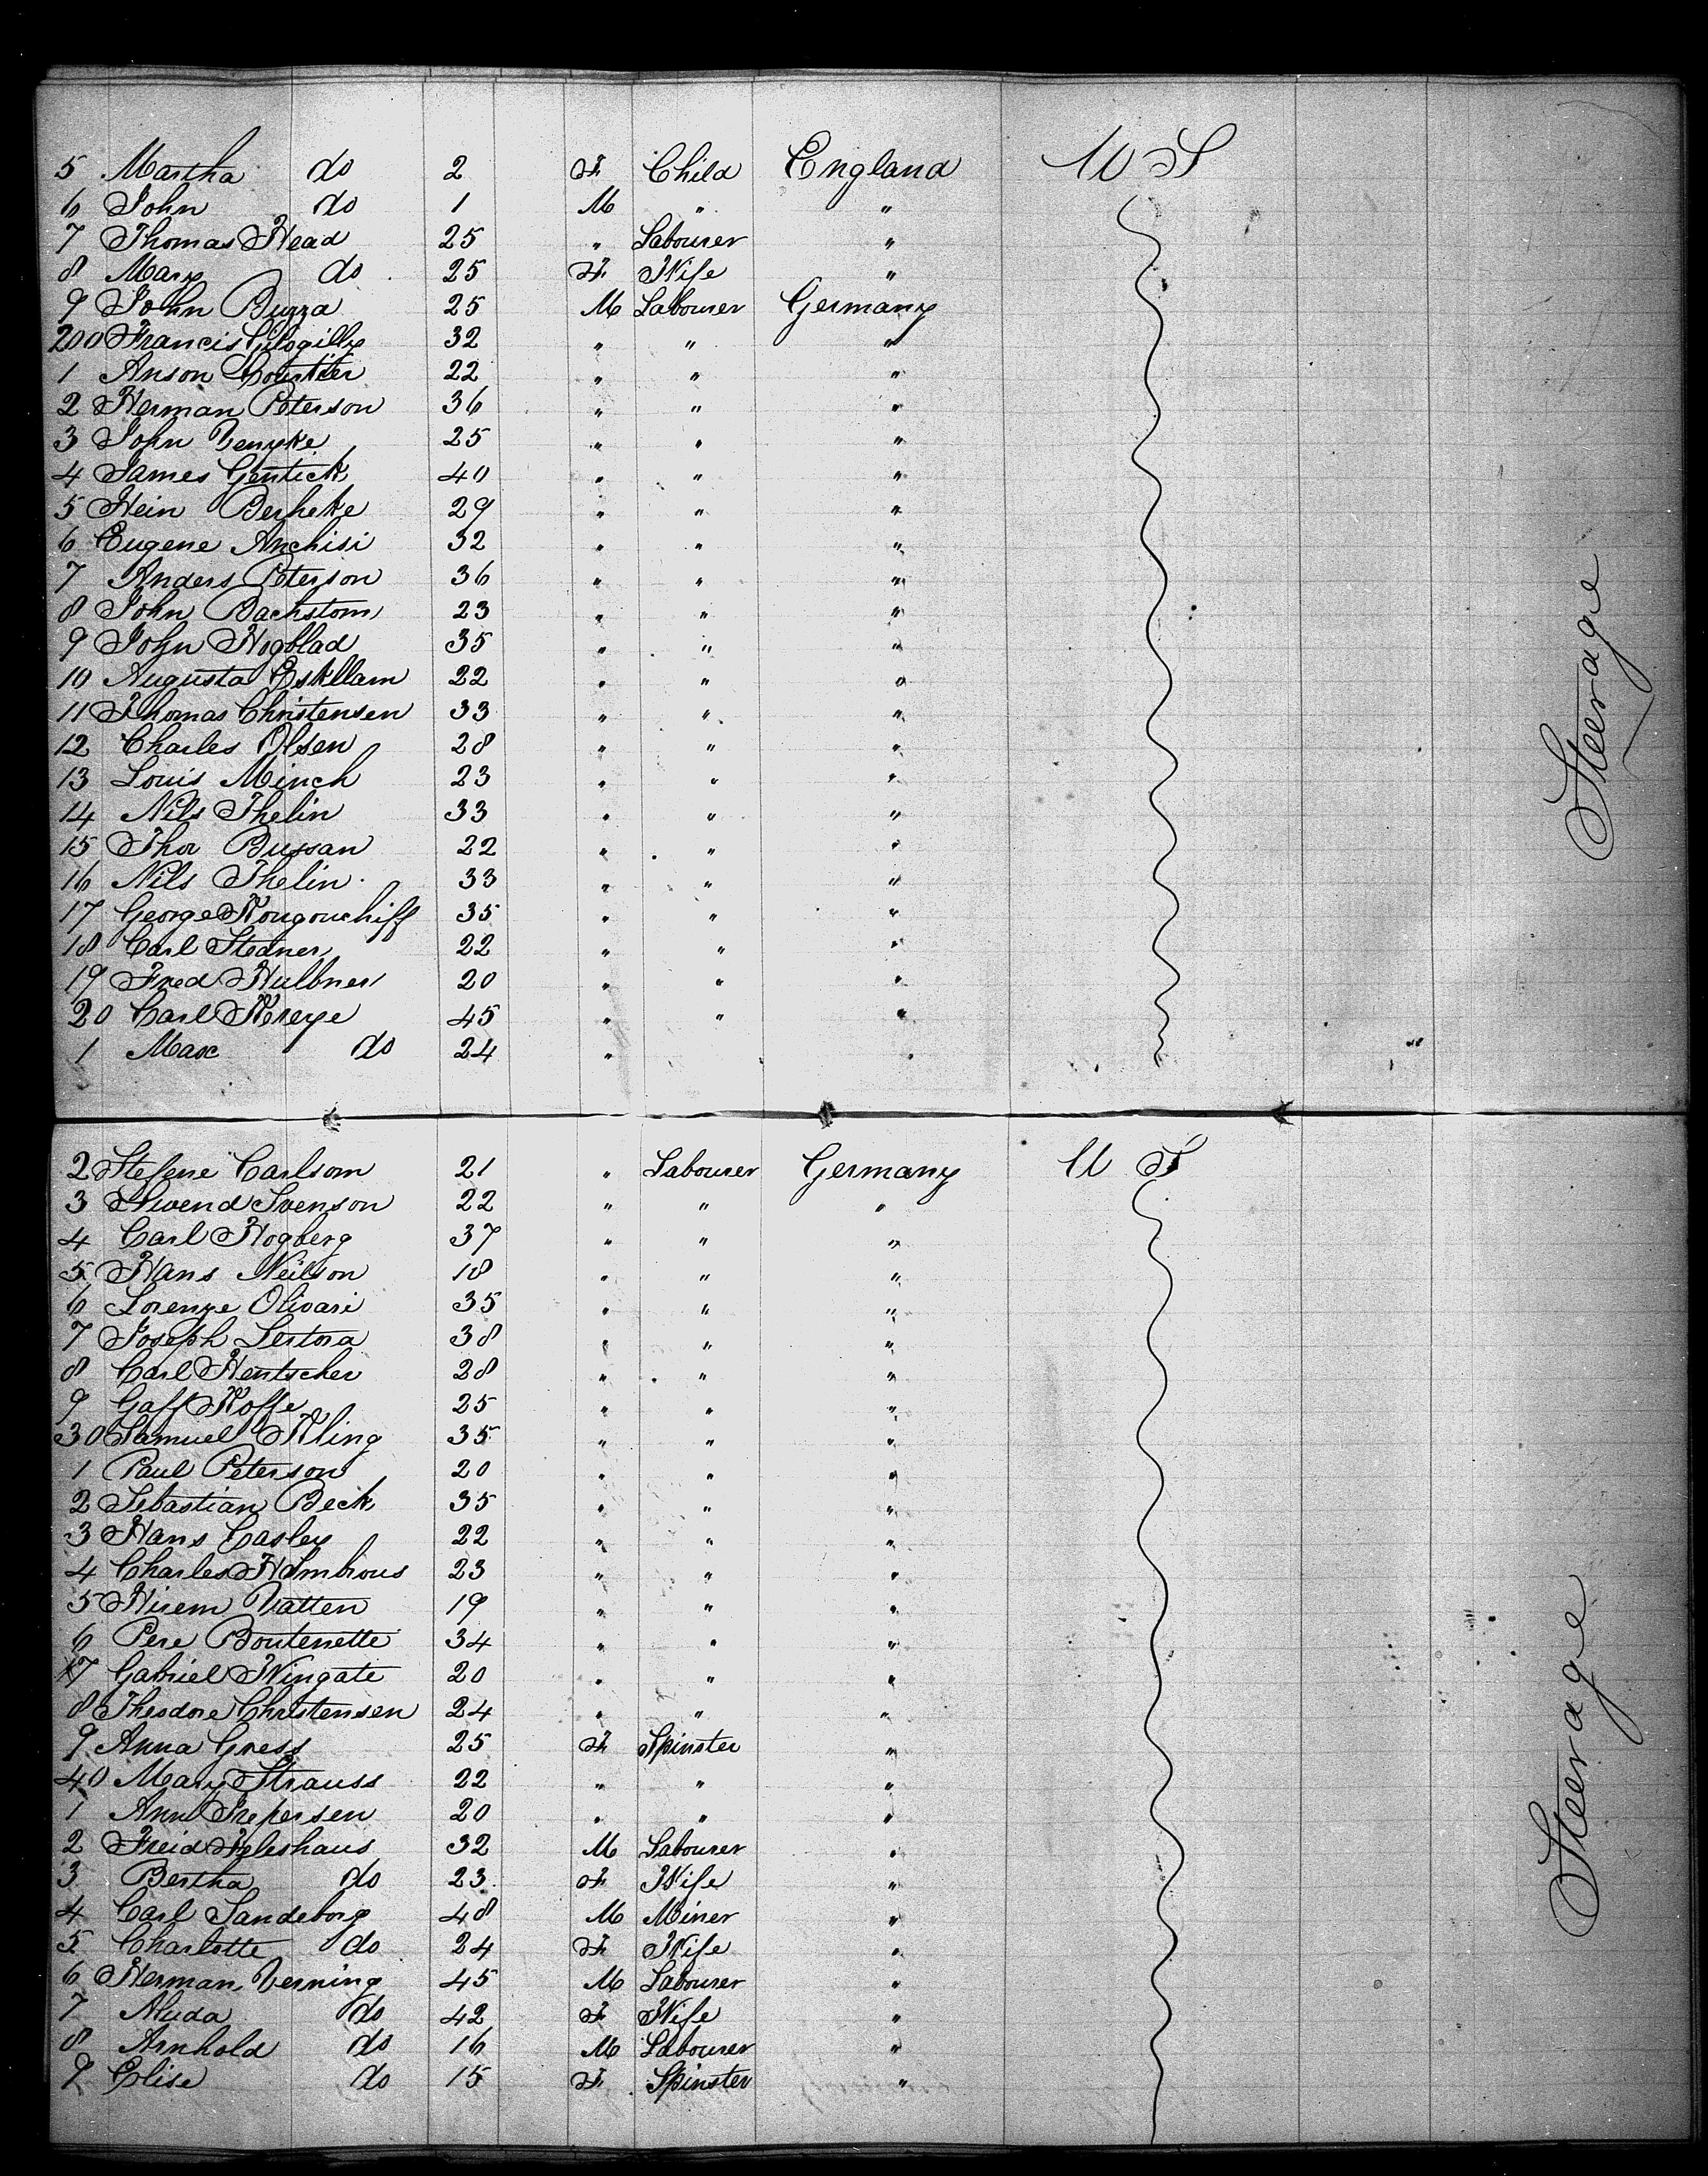 5 Martha do 2 F Child England U S
6 John do 1 M " "
7 Thomas Head 25 " Labourer "
8 Mary do 25 F Wife "
9 John Buzza 25 M Labourer Germany
200 Francis 32 " " "
1 Anson 22 " " "
2 Herman Peterson 36 " " "
3 John 25 " " "
4 James Gentick 40 " " "
5 Hein Berheke 29 " " "
6 Eugene Anchisi 32 " " "
7 Anders Peterson 36 " " "
8 John Bachstom 23 " " "
9 John Hogblad 35 " " "
10 Augusta 22 " " "
11 Thomas Christensen 33 " " "
12 Charles Olsen 28 " " "
13 Louis Minch 23 " " "
14 Nils Thelin 33 " " "
15 Thor 22 " " "
16 Nils Thelin 33 " " "
17 George 35 " " "
18 Carl Stedner 22 " " "
19 Fred Hulbner 20 " " "
20 Carl 45 " " "
1 Max do 24 " "
Steerage
2 Carlsom 21 " Labourer Germany U S
3 Swend Svenson 22 " " "
4 Carl Hogberg 37 " " "
5 Hans Neilson 18 " " "
6 Lorenze Olivari 35 " " "
7 Joseph Lertora 38 " " "
8 Carl Hentscher 28 " " "
9 Gaff Koffe 25 " " "
30 Samuel Kling 35 " " "
1 Paul Peterson 20 " " "
2 Sebastian Beck 35 " " "
3 Hans Casley 22 " " "
4 Charles 23 " " "
5 Hirem Vatten 19 " " "
6 Pere Boutenette 34 " " "
7 Gabriel Wingate 20 " " "
8 Theodore Christensen 24 " " "
9 Anna Gress 25 F Spinster "
40 Mary Strauss 22 " " "
1 Ann 20 " " "
2 Freid 32 M Labourer "
3 Bertha do 23 F Wife "
4 Carl Sandeborg 48 M Miner "
5 Charlotte do 24 F Wife "
6 Herman Verning 45 M Labourer "
7 Aluda do 42 F Wife "
8 Arnhold do 16 M Labourer "
9 Elise do 15 F Spinster "
Steerage